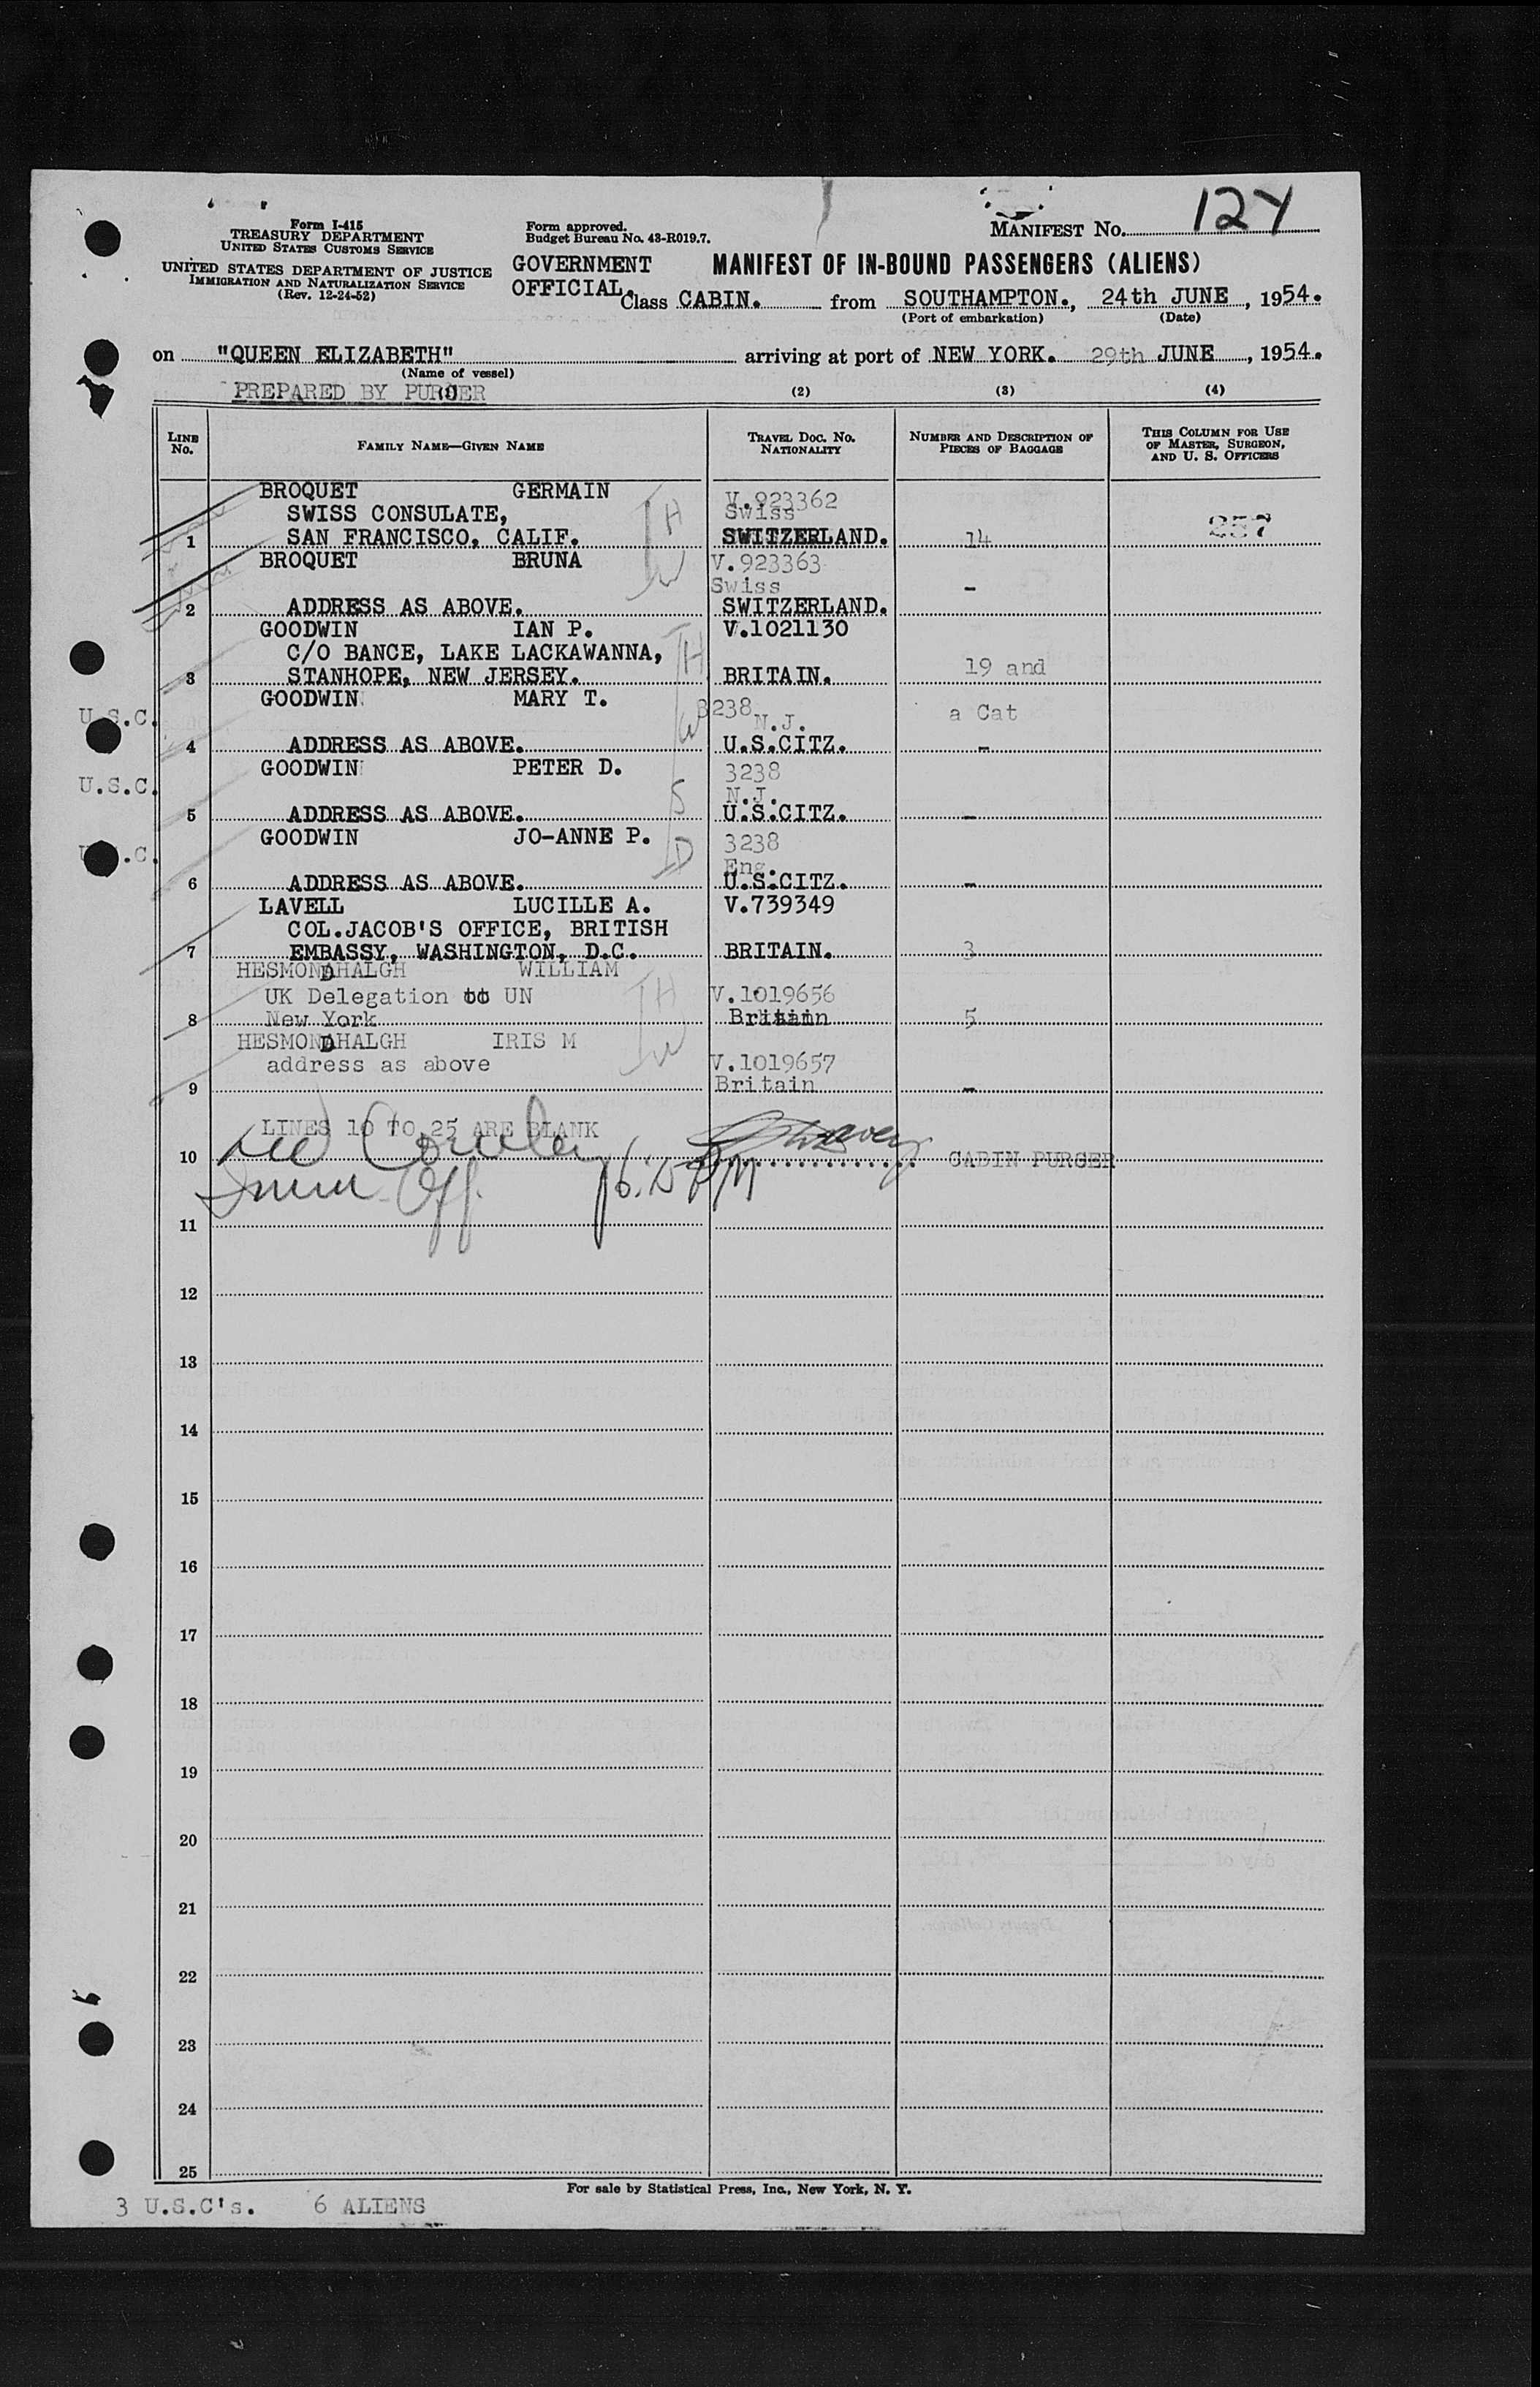 Form I-415
TREASURY DEPARTMENT
UNITED STATES CUSTOMS SERVICE
UNITED STATES DEPARTMENT OF JUSTICE
IMMIGRATION AND NATURALIZATION SERVICE
(Rev. 12-24-52)
Form approved.
Budget Bureau No. 43-R019.7.
MANIFEST No. 124
GOVERNMENT OFFICIAL.
MANIFEST OF IN-BOUND PASSENGERS (ALIENS)
Class CABIN. from SOUTHAMPTON., 24th JUNE, 1954.
(Port of embarkation) (Date)
on "QUEEN ELIZABETH" arriving at port of NEW YORK. 29th JUNE, 1954.
(Name of vessel)
PREPARED BY PURSER (2) (3) (4)
LINE No. FAMILY NAME—GIVEN NAME TRAVEL DOC. No. NATIONALITY NUMBER AND DESCRIPTION OF PIECES OF BAGGAGE THIS COLUMN FOR USE OF MASTER, SURGEON, AND U. S. OFFICERS
BROQUET GERMAIN V.923362
SWISS CONSULATE, Swiss
1 SAN FRANCISCO, CALIF. SWITZERLAND. 14 257
H
BROQUET BRUNA V.923363
W Swiss -
2 ADDRESS AS ABOVE. SWITZERLAND.
GOODWIN IAN P. V.1021130
C/O BANCE, LAKE LACKAWANNA, H
3 STANHOPE, NEW JERSEY. BRITAIN. 19 and
GOODWIN MARY T. 3238 a Cat
U.S.C. W N.J.
4 ADDRESS AS ABOVE. U.S.CITZ. -
GOODWIN PETER D. 3238
U.S.C. S N.J.
5 ADDRESS AS ABOVE. U.S.CITZ. -
GOODWIN JO-ANNE P. 3238
U.S.C. D Eng.
6 ADDRESS AS ABOVE. U.S.CITZ. -
LAVELL LUCILLE A. V.739349
COL.JACOB'S OFFICE, BRITISH
7 EMBASSY, WASHINGTON, D.C. BRITAIN. 3
HESMONDHALGH WILLIAM
UK Delegation to UN H V.1019656
8 New York Britain 5
HESMONDHALGH IRIS M
address as above W V.1019657
9 Britain -
LINES 10 TO 25 ARE BLANK
10 CABIN PURSER
Imm Off.
11
12
13
14
15
16
17
18
19
20
21
22
23
24
25
For sale by Statistical Press, Inc., New York, N. Y.
3 U.S.C's. 6 ALIENS